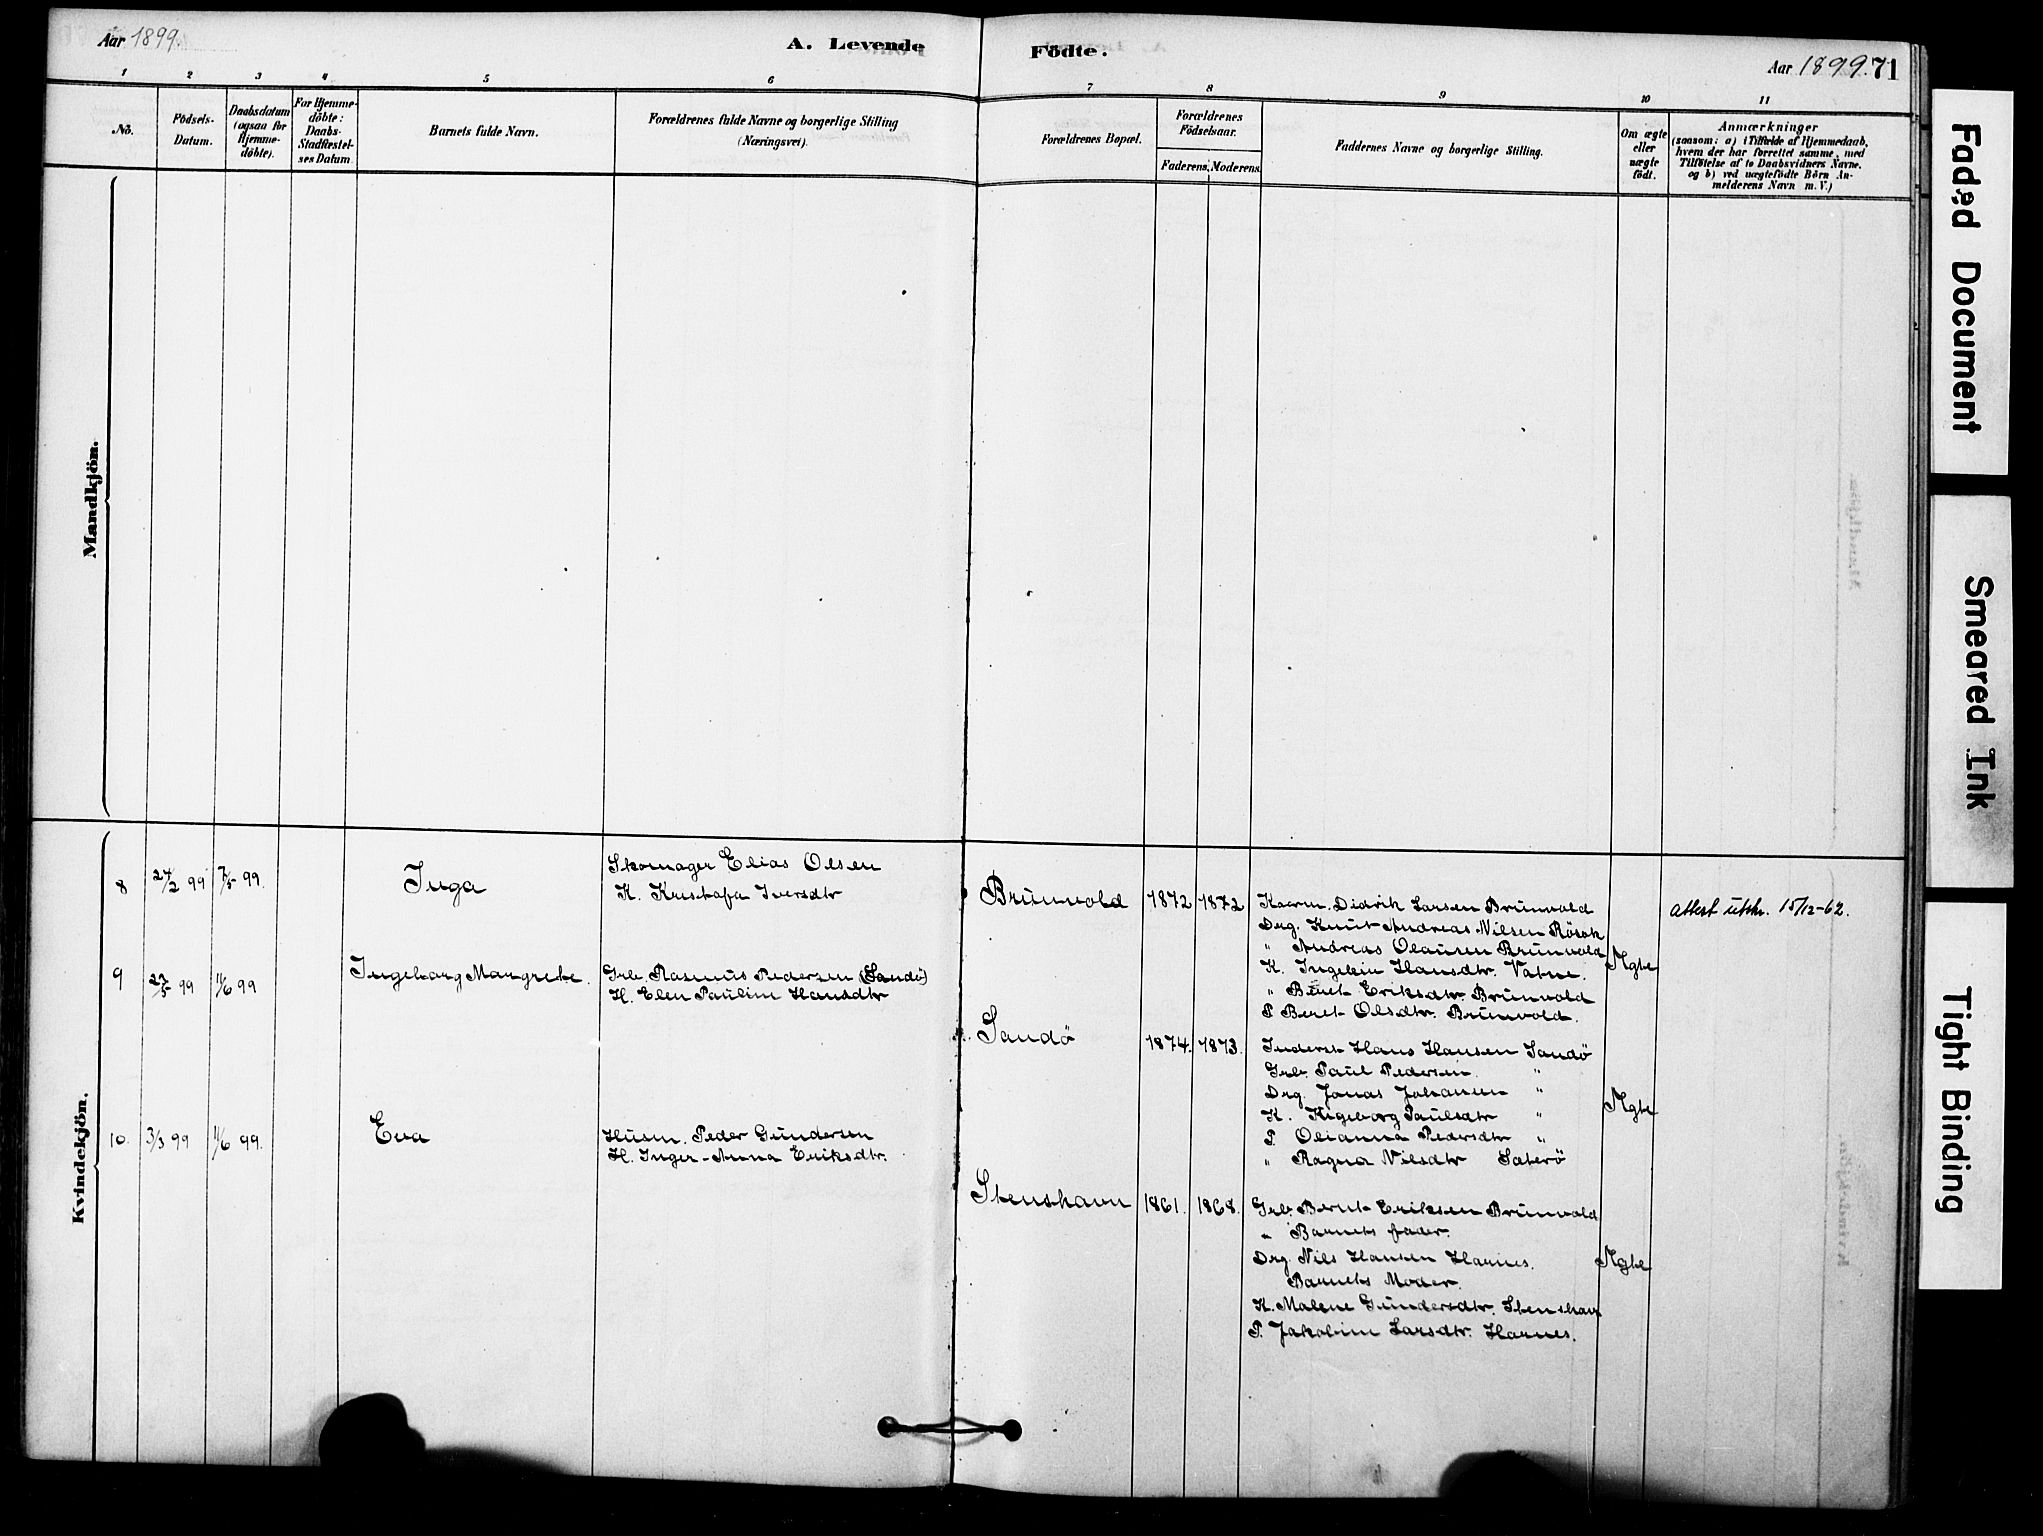 Aar 1899.
A. Levende Födte.
Aar 1899. 71
1 2 3 4 5 6 7 8 9 10 11
No.
Födsels-
Datum.
Daabsdatum
(ogsaa for
Hjemme-
döbte).
For Hjemme-
döbte:
Daabs-
Stadfæstel-
ses Datum.
Barnets fulde Navn.
Forældrenes fulde Navne og borgerlige Stilling
(Næringsvei).
Forældrenes Bopæl.
Forældrenes
Födselsaar.
Faderens. Moderens.
Faddernes Navne og borgerlige Stilling.
Om ægte
eller
uægte
födt.
Anmærkninger
(saasom: a) i Tilfælde af Hjemmedaab,
hvem der har forrettet samme, med
Tilföielse af to Daabsvidners Navne.
og b) ved uægtefödte Börn An-
melderens Navn m. V.)
Mandkjön.
Kvindekjön.
8 27/2 99 7/5 99. Inga
Skomager Elias Olsen
K. Kristofa Iversdtr
Brunvold 1872 1872
Kaarm. Didrik Larsen Brunvold
Drg. Knut Andreas Nilsen Rösok
" Andreas Olausen Brunvold
K. Ingebin Hansdtr. Vatne.
" Beret Eriksdtr. Brunvold
P. Beret Olsdtr. Brunvold.
Ægte
attest utskr. 15/12-62.
9 99 11/6 99 Ingeborg Margrete.
Grb. Rasmus Pedersen (Sandö)
H. Elen Pauline Hansdtr
Sandö 1874. 1873.
Inderst Hans Hansen Sandö
Grb. Paul Pedersen "
Drg. Jonas Johansen "
K. Ingeborg Paulsdtr "
P. Olianna Pedersdtr "
" Ragna Nilsdtr Saterö
Ægte
10. 3/3 99 11/6 99. Eva
Husm. Peder Gundersen
H. Inger-Anna Eriksdtr.
Stenshavn 1861. 1868.
Grb. Bernt Eriksen Brunvold
" Barnets fader.
Drg. Nils Hansen Harnes.
Barnets Moder.
K. Malene Gundersdtr. Stenshavn
P. Jakobine Larsdtr. Harnes.
Ægte
Faded Document
Smeared Ink
Tight Binding